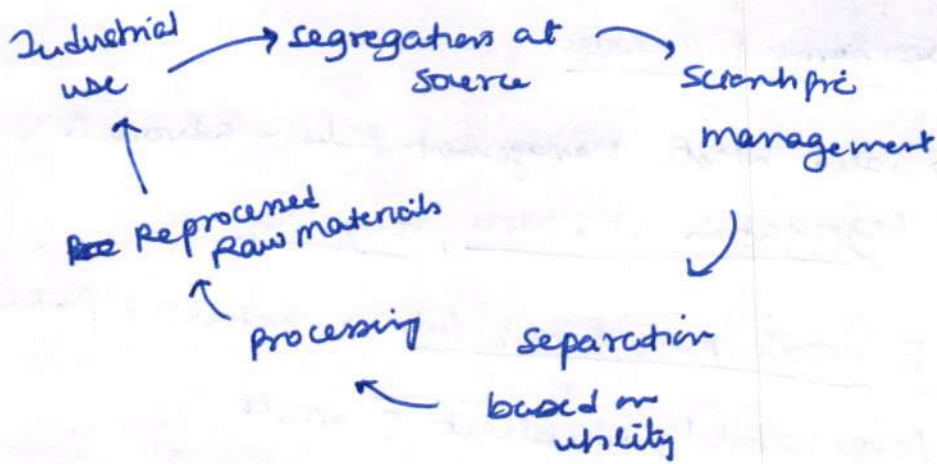 Industrial
use
segregation at
source
Scientific
management
Separation
based on
utility
processing
Reprocessed
Raw materials